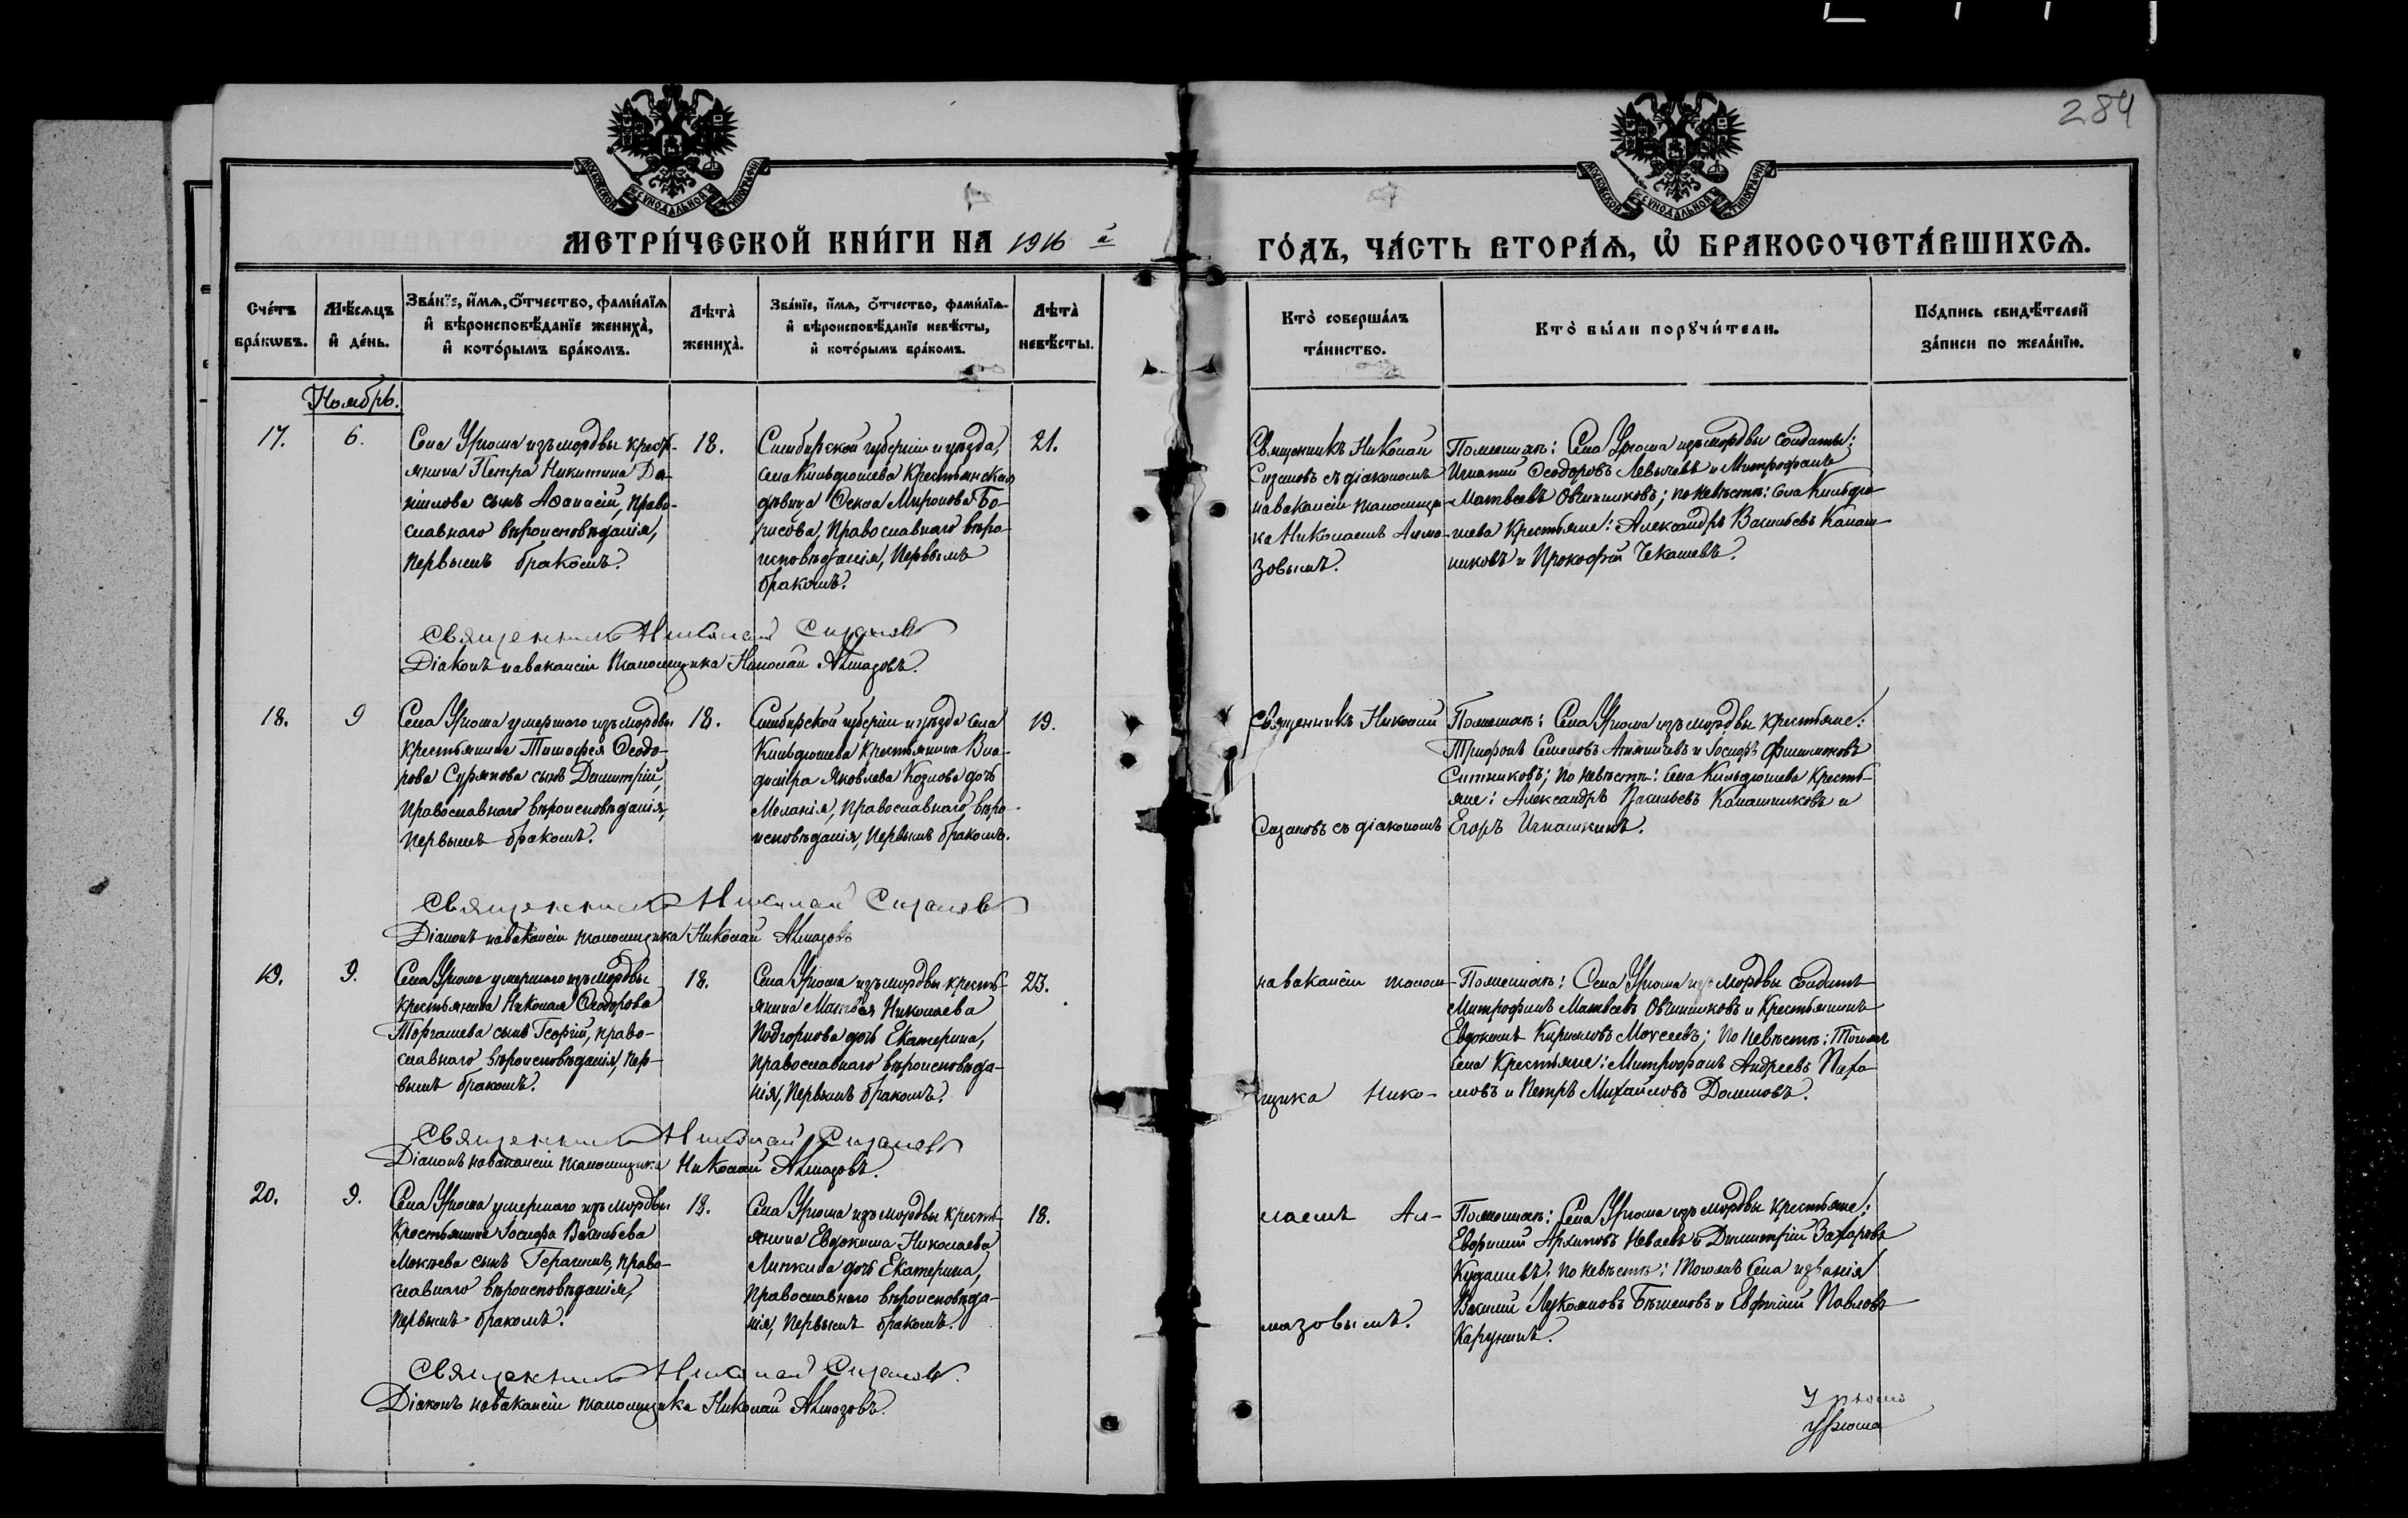 284
МОСКОВСКОЙ СѴНОДАЛЬНОЙ ТИПОГРАФІИ
МОСКОВСКОЙ СѴНОДАЛЬНОЙ ТИПОГРАФІИ
МЕТРИ́ЧЕСКОЙ КНИ́ГИ НА 1916 й
ГО́ДЪ, ЧА́СТЬ ВТОРА́Ѧ, Ѡ҆ БРАКОСОЧЕТА́ВШИХСѦ.
Сче́тъ
бра́кѡвъ.
Мѣ́сѧцъ
и҆ де́нь.
Зва́нїе, и҆́мѧ, ѻ҆́тчество, фами́лїѧ
и҆ вѣроисповѣ́данїе жениха̀,
и҆ кото́рымъ бра́комъ.
Лѣта̀
жениха̀.
Зва́нїе, и҆́мѧ, ѻ҆́тчество, фами́лїѧ
и҆ вѣроисповѣ́данїе невѣ́сты,
и҆ кото́рымъ бра́комъ.
Лѣта̀
невѣ́сты.
Кто̀ соверша́лъ
та́инство.
Кто̀ бы́ли порꙋчи́тели.
По́дпись свидѣ́телей
за́писи по жела́нїю.
Ноябрь.
17.
6.
Села Урюма изъ мордвы кресть-
янина Петра Никитина Да-
нилова сынъ Аѳанасій, право-
славнаго вѣроисповѣданія,
первымъ бракомъ.
18.
Симбирской губерніи и уѣзда,
села Кильдюшева крестьянская
дѣвица Ѳекла Миронова Бо-
рисова, православнаго вѣро-
исповѣданія, первымъ
бракомъ.
21.
Священникъ Николай
Сизановъ съ діакономъ
на вакансіи псаломщи-
ка Николаемъ Алма-
зовымъ.
По женихѣ: Села Урюма изъ мордвы солдаты:
Игнатій Ѳеодоровъ и Митрофанъ
Матвѣевъ Овчинниковъ; по невѣстѣ: села Кильдю-
шева крестьяне: Александръ Васильевъ Калаш-
никовъ и Прокофій Чекашевъ.
Священникъ Николай Сизановъ
Діаконъ на вакансіи псаломщика Николай Алмазовъ.
18.
9
Села Урюма умершаго изъ мордвы
крестьянина Тимофея Ѳеодо-
рова Сурякова сынъ Димитрій,
православнаго вѣроисповѣданія,
первымъ бракомъ.
18.
Симбирской губерніи и уѣзда села
Кильдюшева крестьянина Вла-
димира Яковлева Козлова дочь
Меланія, православнаго вѣро-
исповѣданія, первымъ бракомъ.
19.
Священникъ Николай
Сизановъ съ діакономъ
По женихѣ: Села Урюма изъ мордвы крестьяне:
Трифонъ Семеновъ и Іосифъ Филимоновъ
Ситниковъ; по невѣстѣ: села Кильдюшева кресть-
яне: Александръ Васильевъ Калашниковъ и
Егоръ Игнашкинъ.
Священникъ Николай Сизановъ
Діаконъ на вакансіи псаломщика Николай Алмазовъ
19.
9.
Села Урюма умершаго изъ мордвы
крестьянина Николая Ѳеодорова
Торгашева сынъ Георгій, право-
славнаго вѣроисповѣданія, пер-
вымъ бракомъ.
18.
Села Урюма изъ мордвы кресть-
янина Матвѣя Николаева
Подгорнова дочь Екатерина,
православнаго вѣроисповѣда-
нія, первымъ бракомъ.
23.
на вакансіи псалом-
щика Нико-
По женихѣ: Села Урюма изъ мордвы солдатъ
Митрофанъ Матвѣевъ Овчинниковъ и крестьянинъ
Евдокимъ Кирилловъ; по невѣстѣ: того же
села крестьяне: Митрофанъ Андреевъ
и Петръ Михайловъ Доминовъ.
Священникъ Николай Сизановъ
Діаконъ на вакансіи псаломщика Николай Алмазовъ.
20.
9.
Села Урюма умершаго изъ мордвы
крестьянина Іосифа Васильева
Мокѣева сынъ Герасимъ, право-
славнаго вѣроисповѣданія,
первымъ бракомъ.
18.
Села Урюма изъ мордвы кресть-
янина Евдокима Николаева
Липкина дочь Екатерина,
православнаго вѣроисповѣда-
нія, первымъ бракомъ.
18.
лаемъ Ал-
мазовымъ.
По женихѣ: Села Урюма изъ мордвы крестьяне:
Архиповъ Неваевъ и Димитрій Захаровъ
Кудашевъ; по невѣстѣ: того же села
Василій Лукьяновъ и Павловъ
Карунинъ.
Священникъ Николай Сизановъ.
Діаконъ на вакансіи псаломщика Николай Алмазовъ.
Урюма
Урюма